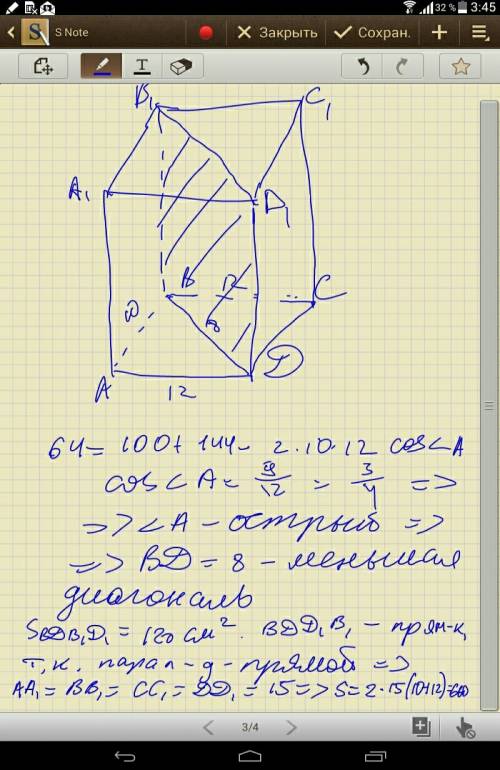 32 % 3:45
S Note Закрыть Сохран.
T
B₁ C₁
A₁ D₁
B 12 C
10 8
A D
12
64 = 100 + 144 - 2·10·12 cos<A
cos<A = 9/12 = 3/4 =>
=> <A - острый =>
=> BD = 8 - меньшая
диагональ
SBDB₁D₁ = 120 см². BDD₁B₁ - прям-к,
т.к. парал-д - прямой =>
AA₁ = BB₁ = CC₁ = DD₁ = 15 => S = 2·15(10+12) = 660
3/4